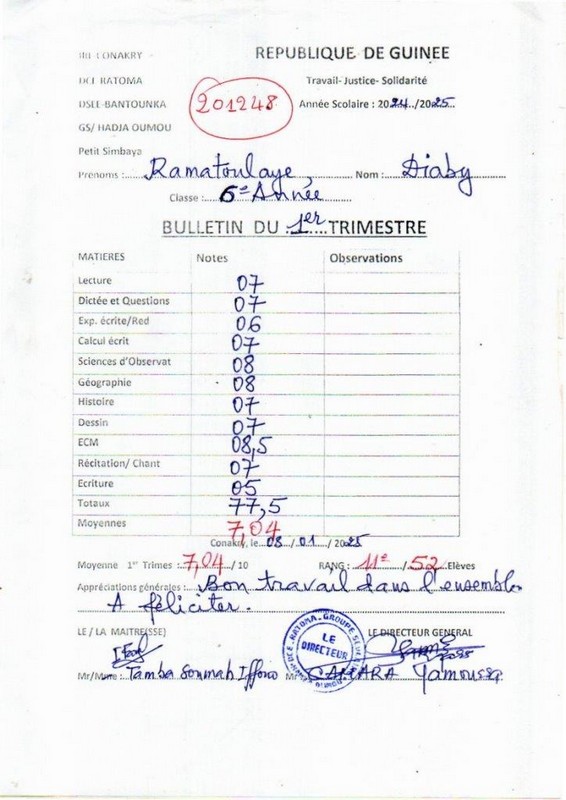 IRE CONAKRY REPUBLIQUE DE GUINEE
DCE RATOMA Travail- Justice- Solidarité
DSEE-BANTOUNKA 201248 Année Scolaire : 2024../2025..
GS/ HADJA OUMOU
Petit Simbaya
Prénoms :..Ramatoulaye, Nom : Diaby
Classe :..6e Année
BULLETIN DU 1er TRIMESTRE
MATIERES Notes Observations
Lecture 07
Dictée et Questions 07
Exp. écrite/Red 06
Calcul écrit 07
Sciences d'Observat 08
Géographie 08
Histoire 07
Dessin 07
ECM 08,5
Récitation/ Chant 07
Ecriture 05
Totaux 77,5
Moyennes 7,04
Conakry, le 08 / 01 / 2025
Moyenne 1er Trimes :.7,04../ 10 RANG : 11e / 52 Elèves
Appréciations générales : Bon travail dans l'ensemble
A féliciter.
LE / LA MAITRE(SSE) LE DIRECTEUR GENERAL
LE DIRECTEUR
Mr/Mme : Tamba Soumah Iffono Mr CAMARA Yamoussa